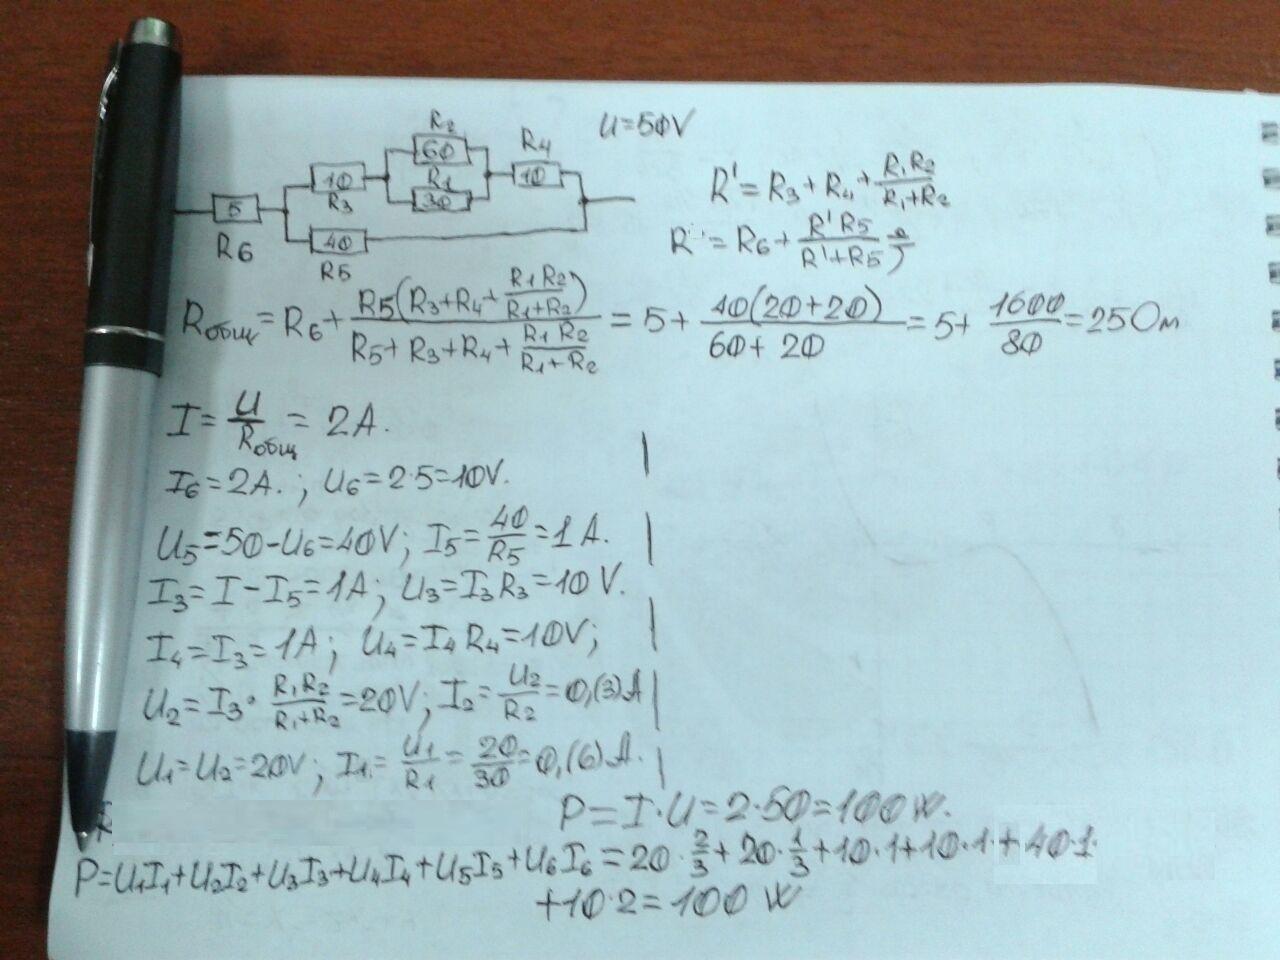 R2
60
R4
U=50V
10
R1
10
R3
30
5
R6
40
R5
R' = R3 + R4 + R1R2/(R1+R2)
R'' = R6 + R'R5/(R'+R5)
Rобщ = R6 + R5(R3+R4+R1R2/(R1+R2))/(R5+R3+R4+R1R2/(R1+R2)) = 5 + 40(20+20)/(60+20) = 5 + 1600/80 = 25Ом
I = U/Rобщ = 2A.
I6=2A.; U6=2·5=10V.
U5=50-U6=40V; I5=40/R5=1A.
I3=I-I5=1A; U3=I3R3=10V.
I4=I3=1A; U4=I4R4=10V;
U2=I3·R1R2/(R1+R2)=20V; I2=U2/R2=0,(3)A
U1=U2=20V; I1=U1/R1=20/30=0,(6)A.
P=I·U=2·50=100W.
P=U1I1+U2I2+U3I3+U4I4+U5I5+U6I6=20·2/3+20·1/3+10·1+10·1+40·1·
+10·2=100W